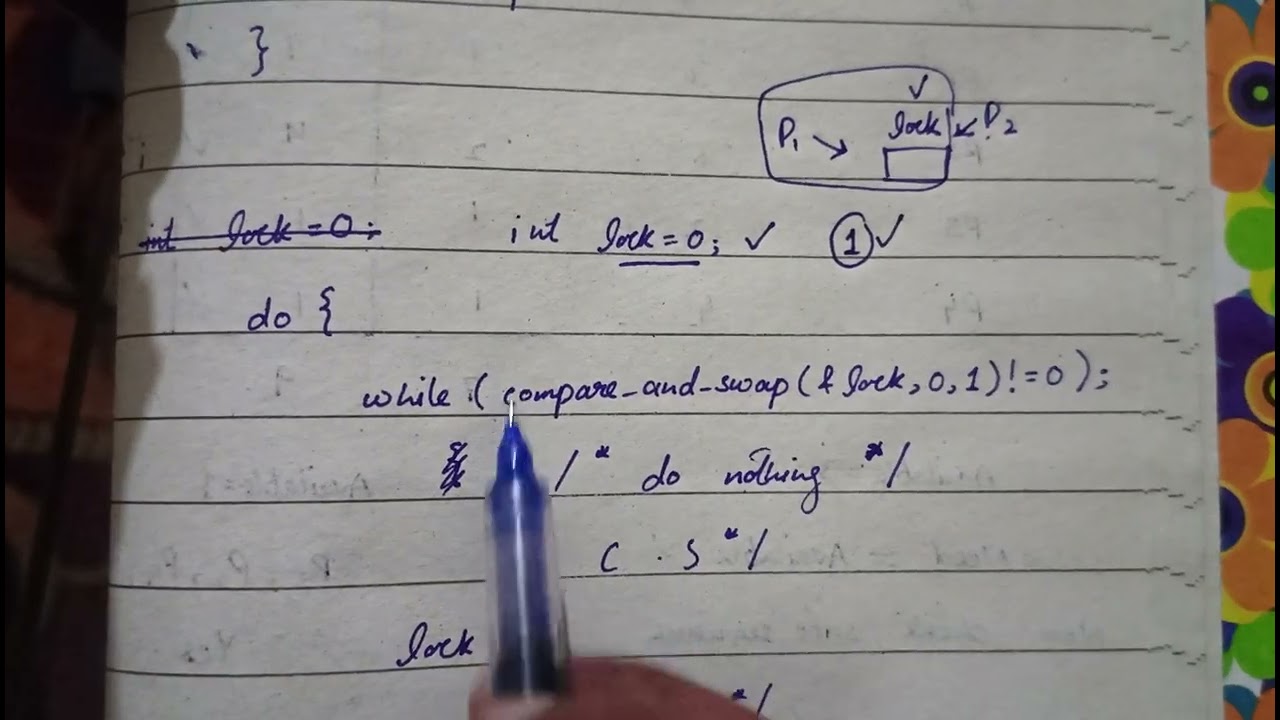 }
✓
P1 → lock ← P2
int lock = 0; int lock = 0; ✓ 1 ✓
do {
while ( compare_and_swap ( & lock, 0, 1 ) != 0 );
/* do nothing */
C . S */
lock
*/